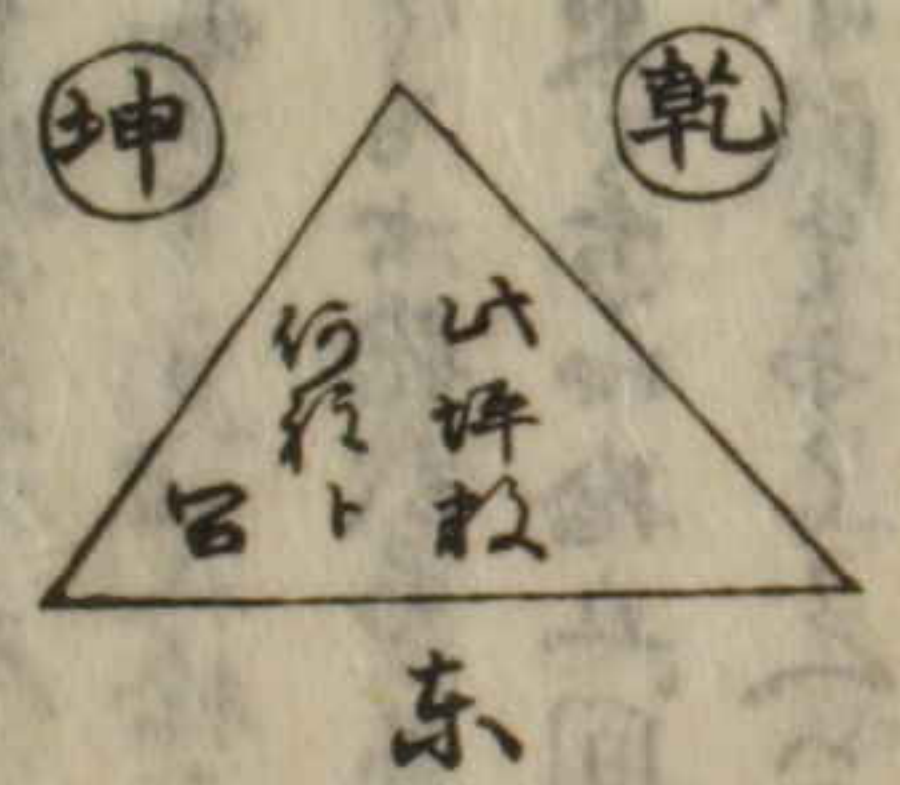 乾
坤
此坪数
何程ト
云
东